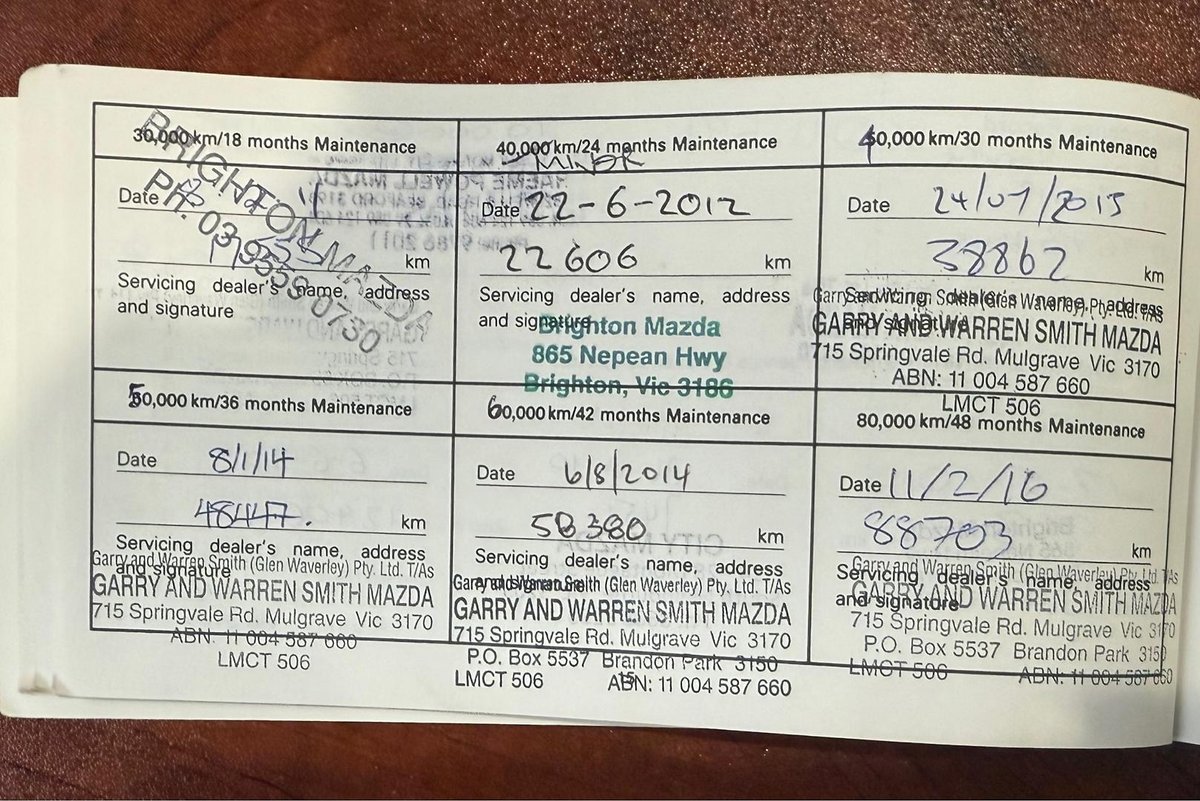 30,000 km/18 months Maintenance
BRIGHTON MAZDA
PH. 03 9559 0730
Date
km
Servicing dealer's name, address
and signature
40,000 km/24 months Maintenance
- MINOR
Date 22-6-2012
22606 km
Servicing dealer's name, address
and signature
Brighton Mazda
865 Nepean Hwy
Brighton, Vic 3186
40,000 km/30 months Maintenance
Date 24/07/2013
38862 km
Servicing dealer's name, address
and signature
Garry and Warren Smith (Glen Waverley) Pty. Ltd. T/As
GARRY AND WARREN SMITH MAZDA
715 Springvale Rd. Mulgrave Vic 3170
ABN: 11 004 587 660
LMCT 506
50,000 km/36 months Maintenance
Date 8/1/14
48447. km
Servicing dealer's name, address
and signature
Garry and Warren Smith (Glen Waverley) Pty. Ltd. T/As
GARRY AND WARREN SMITH MAZDA
715 Springvale Rd. Mulgrave Vic 3170
ABN: 11 004 587 660
LMCT 506
60,000 km/42 months Maintenance
Date 6/8/2014
58380 km
Servicing dealer's name, address
and signature
Garry and Warren Smith (Glen Waverley) Pty. Ltd. T/As
GARRY AND WARREN SMITH MAZDA
715 Springvale Rd. Mulgrave Vic 3170
P.O. Box 5537 Brandon Park 3150
LMCT 506 ABN: 11 004 587 660
15
80,000 km/48 months Maintenance
Date 11/2/16
88703 km
Servicing dealer's name, address
and signature
Garry and Warren Smith (Glen Waverley) Pty. Ltd. T/As
GARRY AND WARREN SMITH MAZDA
715 Springvale Rd. Mulgrave Vic 3170
P.O. Box 5537 Brandon Park 3150
LMCT 506 ABN: 11 004 587 660